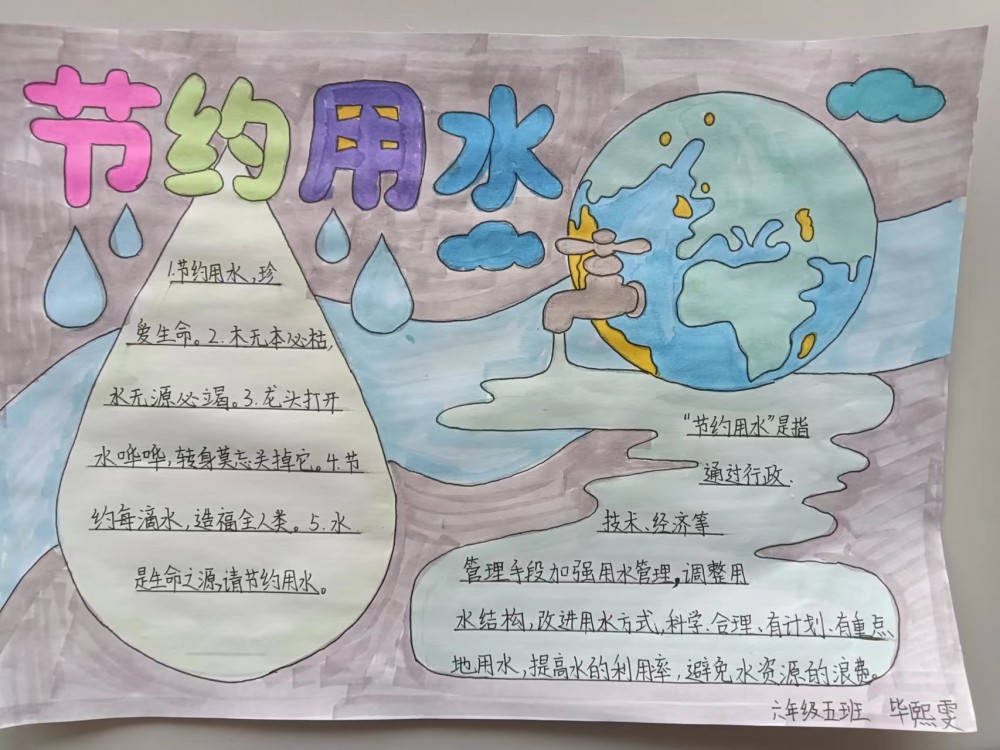 节约用水
1.节约用水,珍
爱生命。2.木无本必枯,
水无源必竭。3.龙头打开
水哗哗,转身莫忘关掉它。4.节
约每滴水,造福全人类。5.水
是生命之源,请节约用水。
“节约用水”是指
通过行政、
技术、经济等
管理手段加强用水管理,调整用
水结构,改进用水方式,科学、合理、有计划、有重点
地用水,提高水的利用率,避免水资源的浪费。
六年级五班 毕熙雯